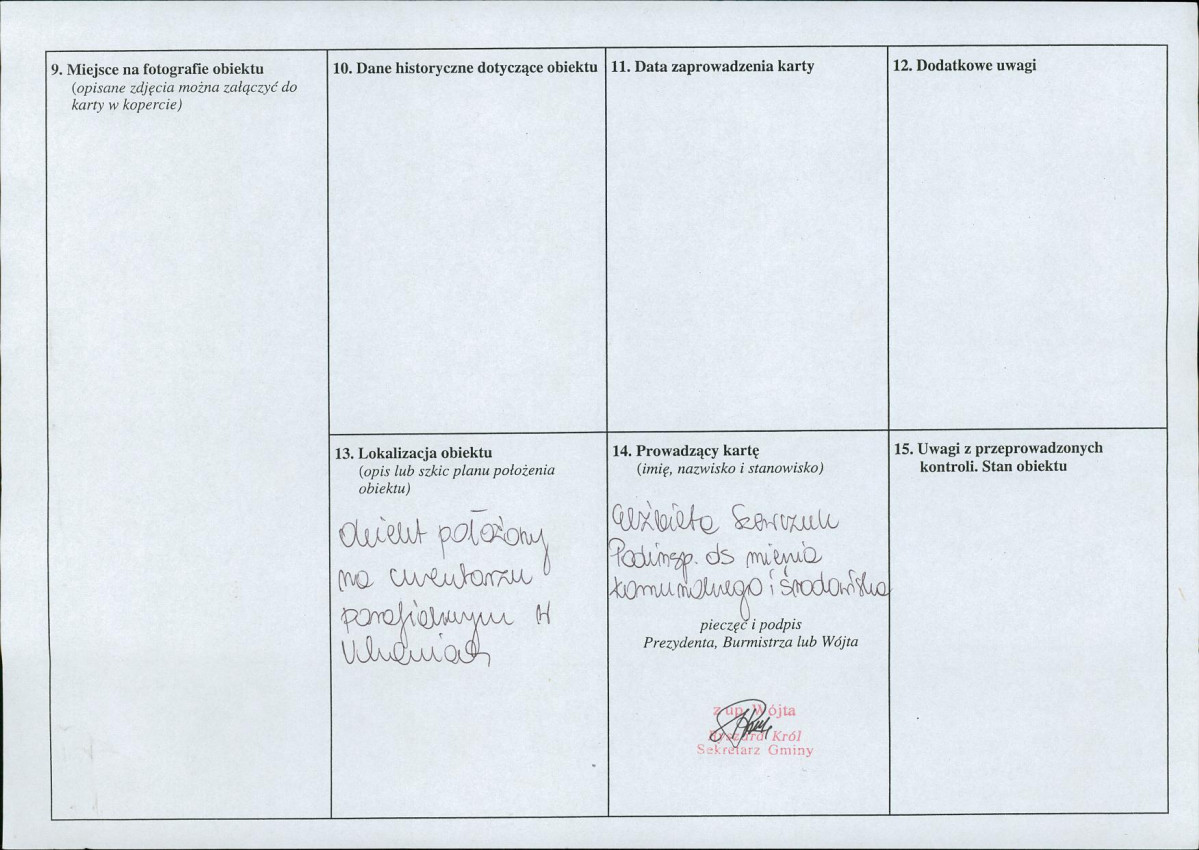 9. Miejsce na fotografie obiektu
(opisane zdjęcia można załączyć do
karty w kopercie)
10. Dane historyczne dotyczące obiektu
11. Data zaprowadzenia karty
12. Dodatkowe uwagi
13. Lokalizacja obiektu
(opis lub szkic planu położenia
obiektu)
obiekt położony
na cmentarzu
parafialnym w
14. Prowadzący kartę
(imię, nazwisko i stanowisko)
Elżbieta Szewczuk
Podinsp. ds mienia
komunalnego i środowiska
pieczęć i podpis
Prezydenta, Burmistrza lub Wójta
z up. Wójta
Ryszard Król
Sekretarz Gminy
15. Uwagi z przeprowadzonych
kontroli. Stan obiektu